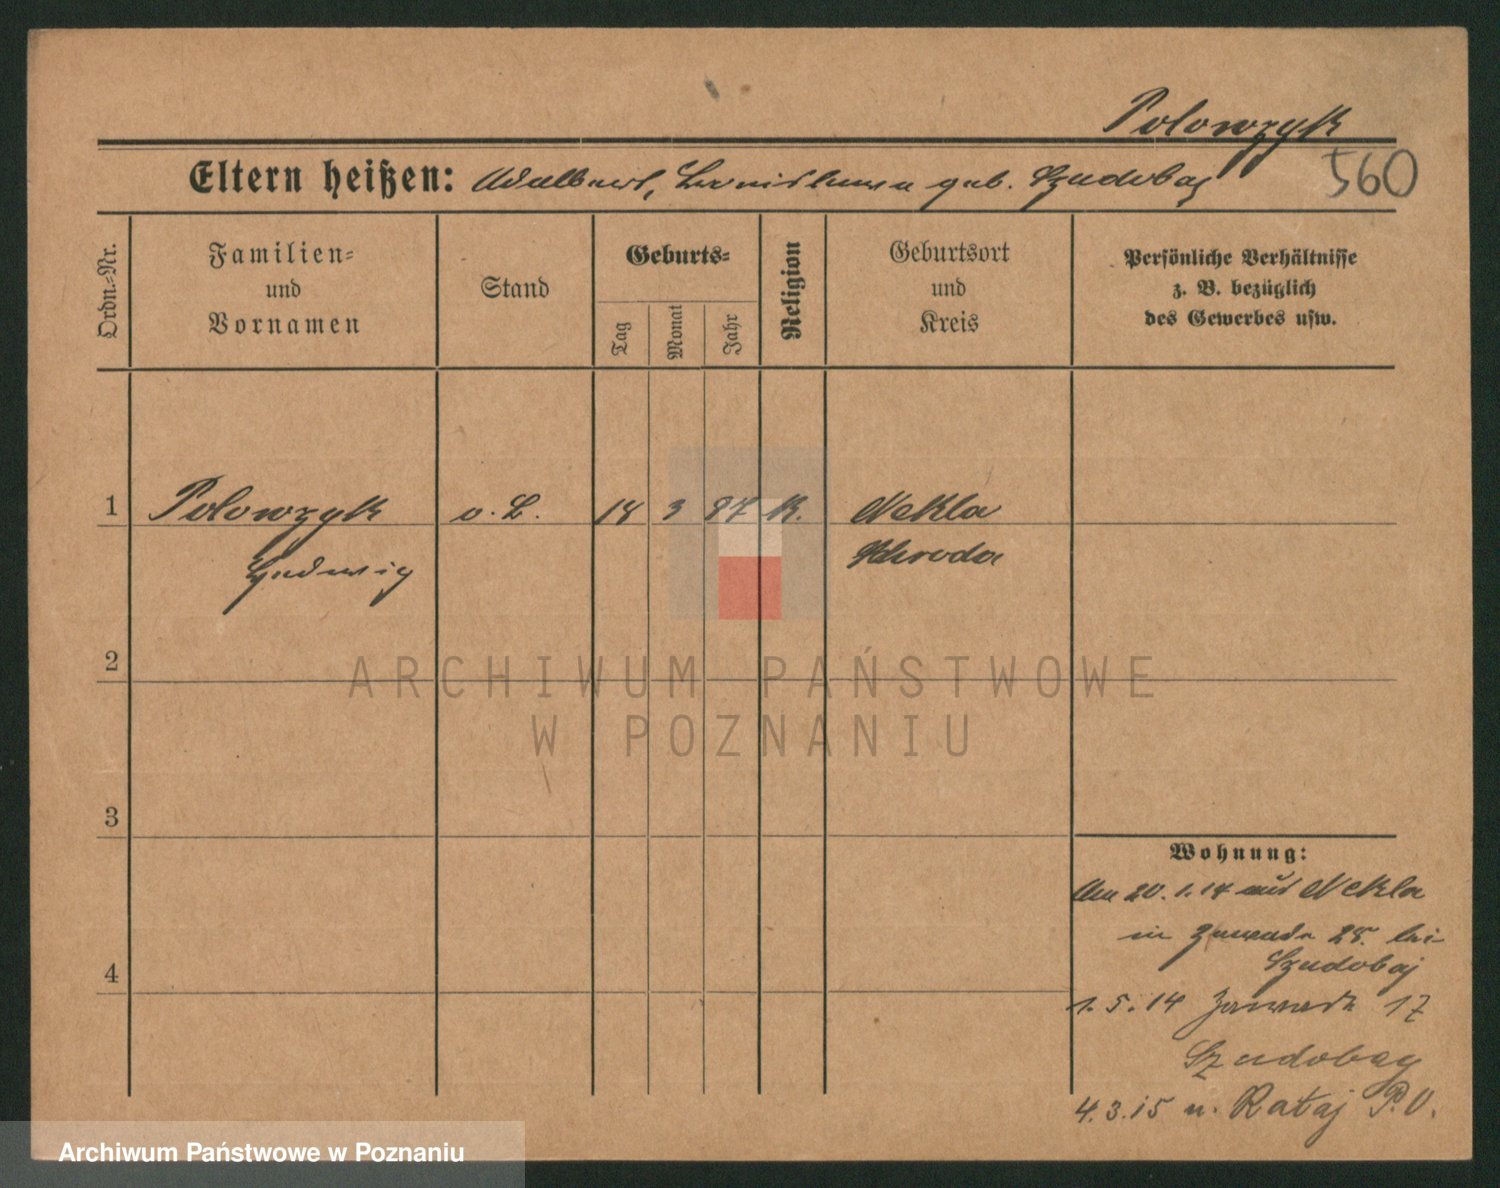 Polowzyk
560
Eltern heißen: Adalbert, Bronislawa geb. Szudobaj
Ordn.-Nr.
Familien- und Vornamen
Stand
Geburts-
Tag
Monat
Jahr
Religion
Geburtsort und Kreis
Persönliche Verhältnisse
z. B. bezüglich
des Gewerbes usw.
1 Polowzyk 18 3 87 K. Nekla
Ludwig Schroda
2
3
4
Wohnung:
Am 20.1.14 aus Nekla
in Zawade 28. bei
Szudobaj
1.5.14 Zawade 17
Szudobaj
4.3.15 n. Rataj P.O.
ARCHIWUM PAŃSTWOWE
W POZNANIU
Archiwum Państwowe w Poznaniu